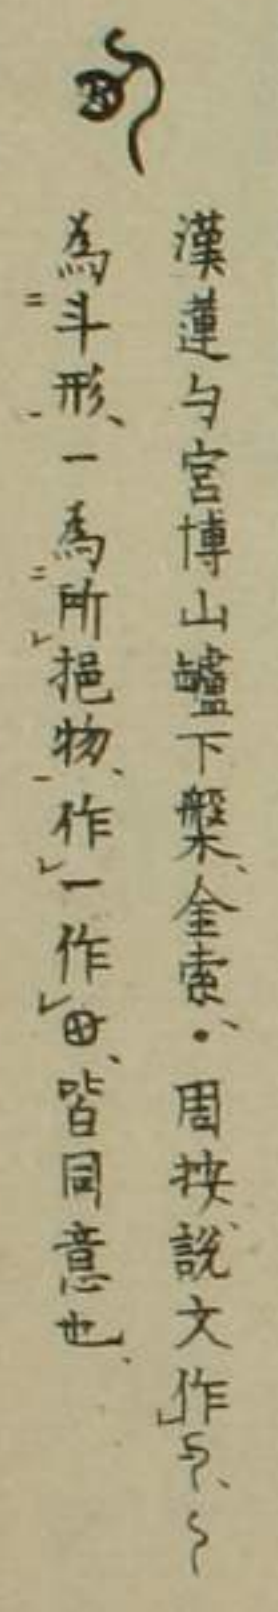 漢蓮勺宮博山鑪下槃、金索、・周按、說文作、
為斗形、一為所挹物、作一作、皆同意也、